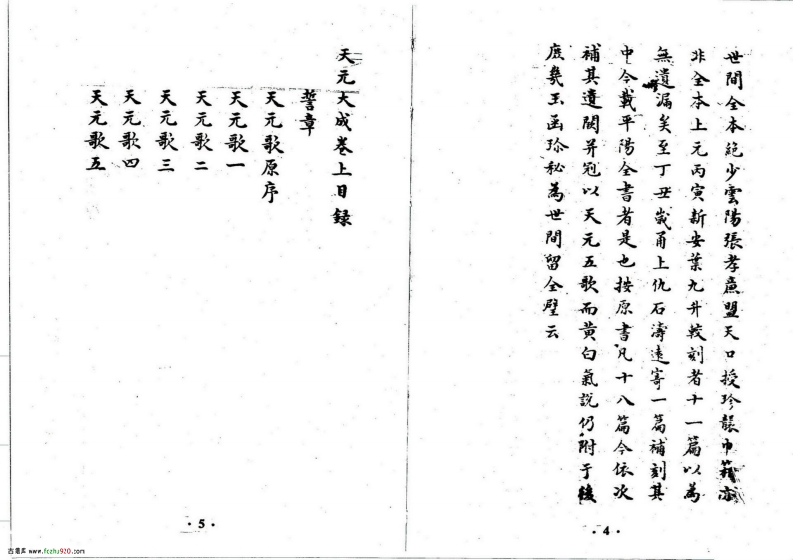 世間全本絕少雲陽張孝廉盟天口授珍襲巾箱亦
非全本上元丙寅新安葉九升較刻者十一篇以為
無遺漏矣至丁丑歲甬上仇石濤遠寄一篇補刻其
中今載平陽全書者是也按原書凡十八篇今依次
補其遺闕并冠以天元五歌而黃白氣說仍附于後
庶幾玉函珍秘為世間留全璧云
·4·
天元大成卷上目録
誓章
天元歌原序
天元歌一
天元歌二
天元歌三
天元歌四
天元歌五
·5·
古易库 www.fczhu920.com